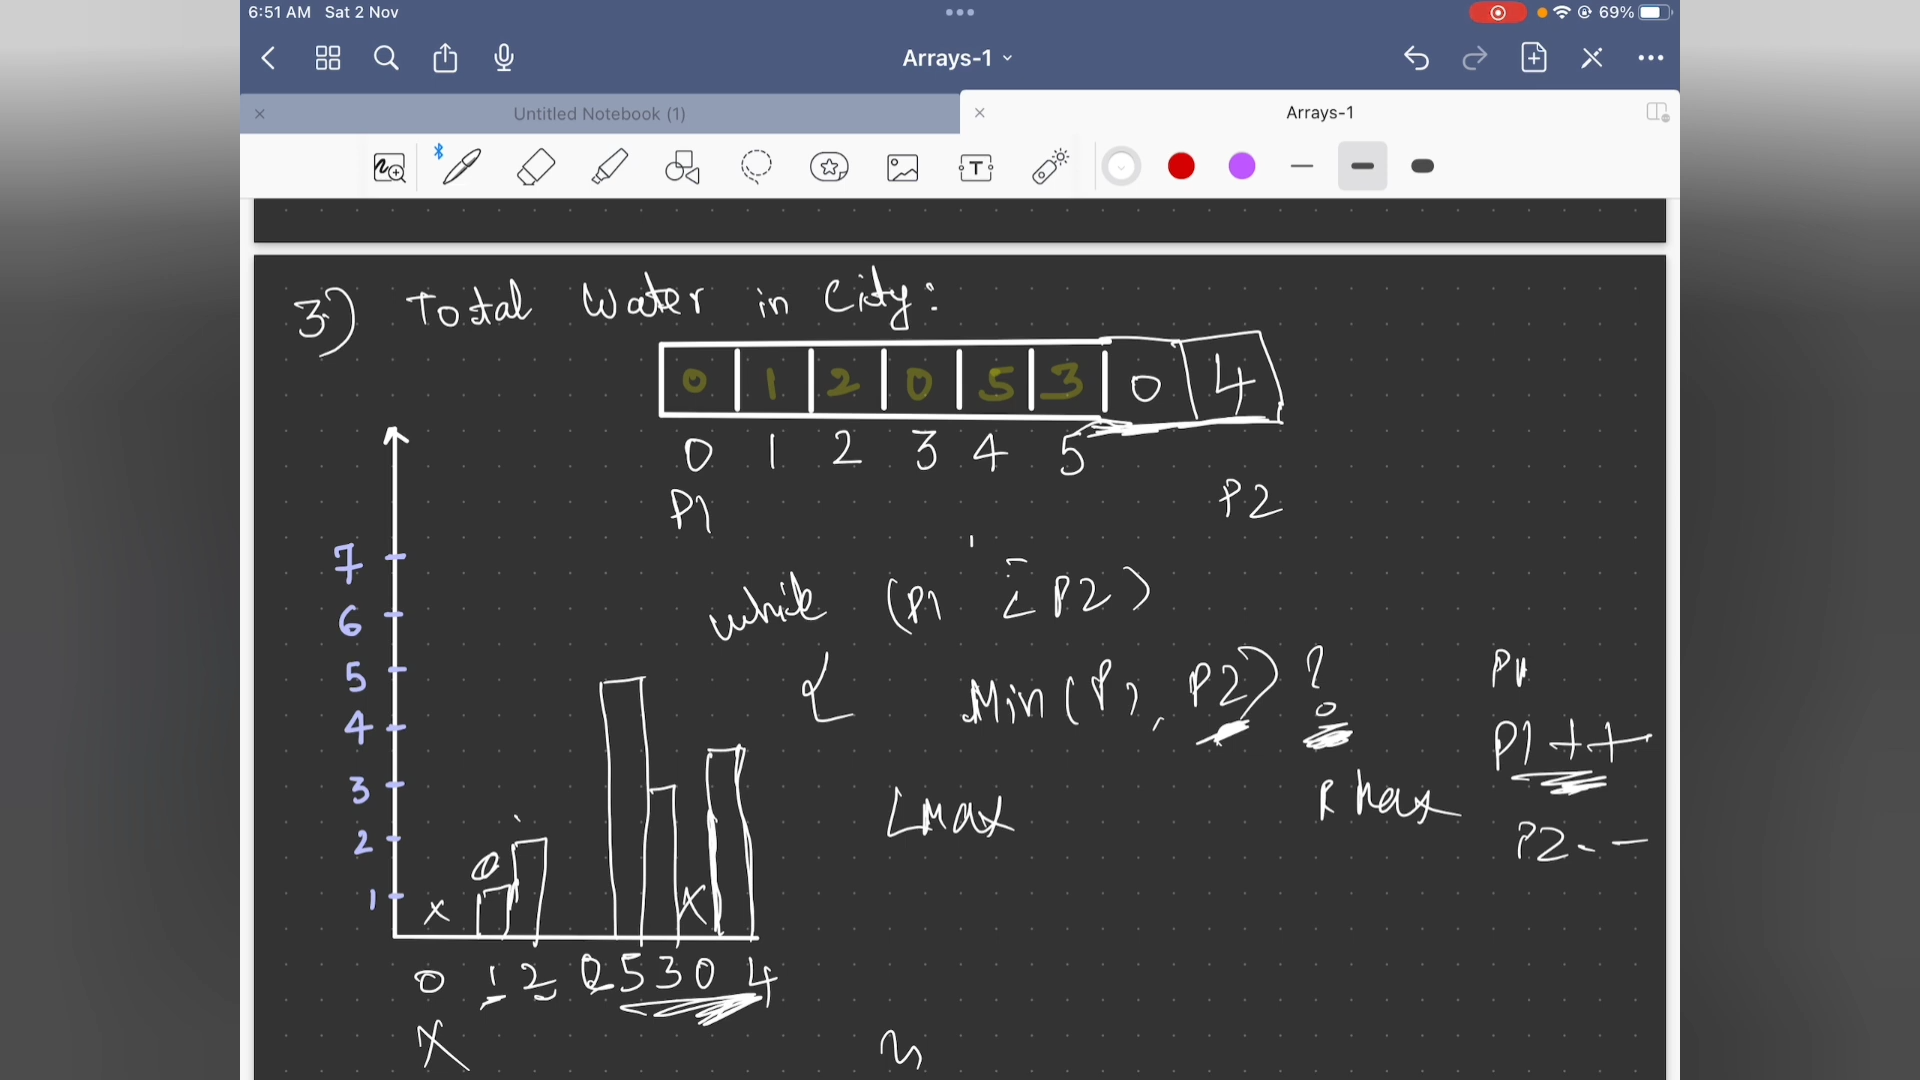 6:51 AM Sat 2 Nov
69%
Arrays-1
Untitled Notebook (1)
Arrays-1
T
3) Total Water in City:
0 1 2 0 5 3 0 4
0 1 2 3 4 5
P1 P2
while (P1 < P2)
{ Min(P1, P2) ?
P1
P1++
LMax RMax
P2--
7
6
5
4
3
2
1
x 0 x
0 1 2 0 5 3 0 4
X